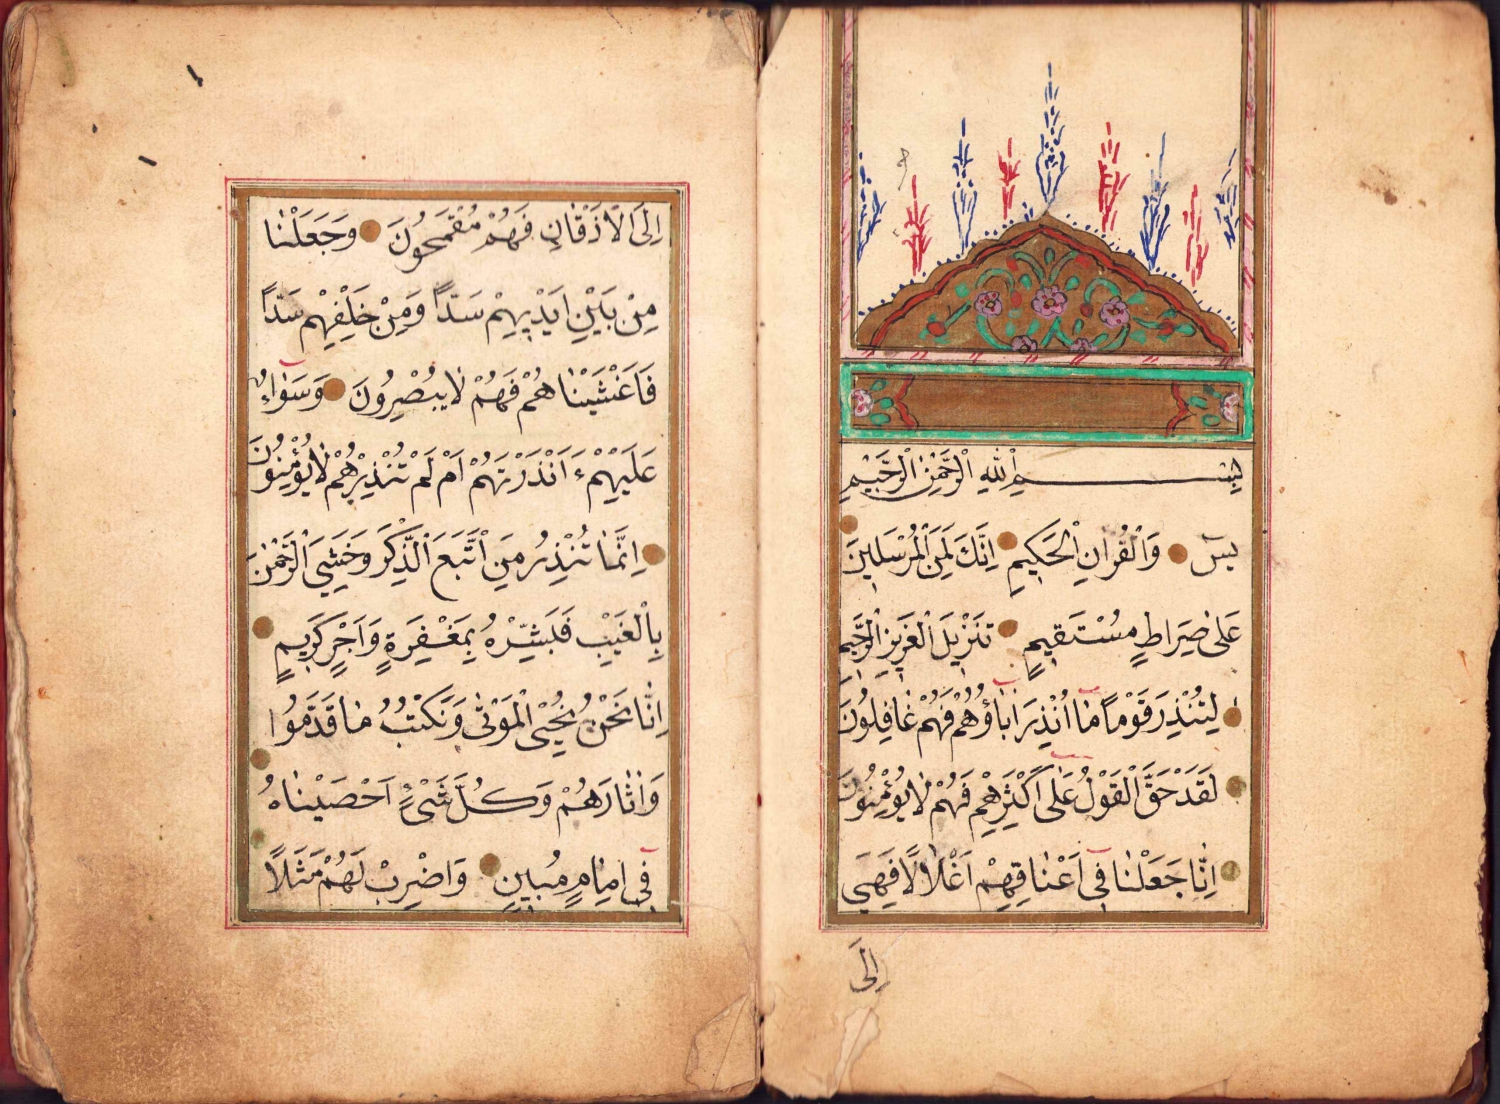 بِسْمِ اللهِ الرَّحْمٰنِ الرَّحِيْمِ
يٰسٓ وَالْقُرْاٰنِ الْحَكِيمِ اِنَّكَ لَمِنَ الْمُرْسَلِينَ
عَلٰى صِرَاطٍ مُسْتَقِيمٍ تَنْزِيلَ الْعَزِيزِ الرَّحِيمِ
لِتُنْذِرَ قَوْمًا مٰٓا اُنْذِرَ اٰبٰٓاؤُهُمْ فَهُمْ غَافِلُونَ
لَقَدْ حَقَّ الْقَوْلُ عَلٰٓى اَكْثَرِهِمْ فَهُمْ لٰا يُؤْمِنُونَ
اِنّٰا جَعَلْنٰا فٓى اَعْنٰاقِهِمْ اَغْلٰالًا فَهِىَ
اِلَى
اِلَى الْاَذْقٰانِ فَهُمْ مُقْمَحُونَ وَجَعَلْنٰا
مِنْ بَيْنِ اَيْدٖيهِمْ سَدًّا وَمِنْ خَلْفِهِمْ سَدًّا
فَاَغْشَيْنٰاهُمْ فَهُمْ لٰا يُبْصِرُونَ وَسَوٰٓاءٌ
عَلَيْهِمْ ءَاَنْذَرْتَهُمْ اَمْ لَمْ تُنْذِرْهُمْ لٰا يُؤْمِنُونَ
اِنَّمٰا تُنْذِرُ مَنِ اتَّبَعَ الذِّكْرَ وَخَشِىَ الرَّحْمٰنَ
بِالْغَيْبِ فَبَشِّرْهُ بِمَغْفِرَةٍ وَاَجْرٍ كَرٖيمٍ
اِنّٰا نَحْنُ نُحْيِى الْمَوْتٰى وَنَكْتُبُ مٰا قَدَّمُوا
وَاٰثٰارَهُمْ وَكُلَّ شَىْءٍ اَحْصَيْنٰاهُ
فٓى اِمٰامٍ مُبٖينٍ وَاضْرِبْ لَهُمْ مَثَلًا